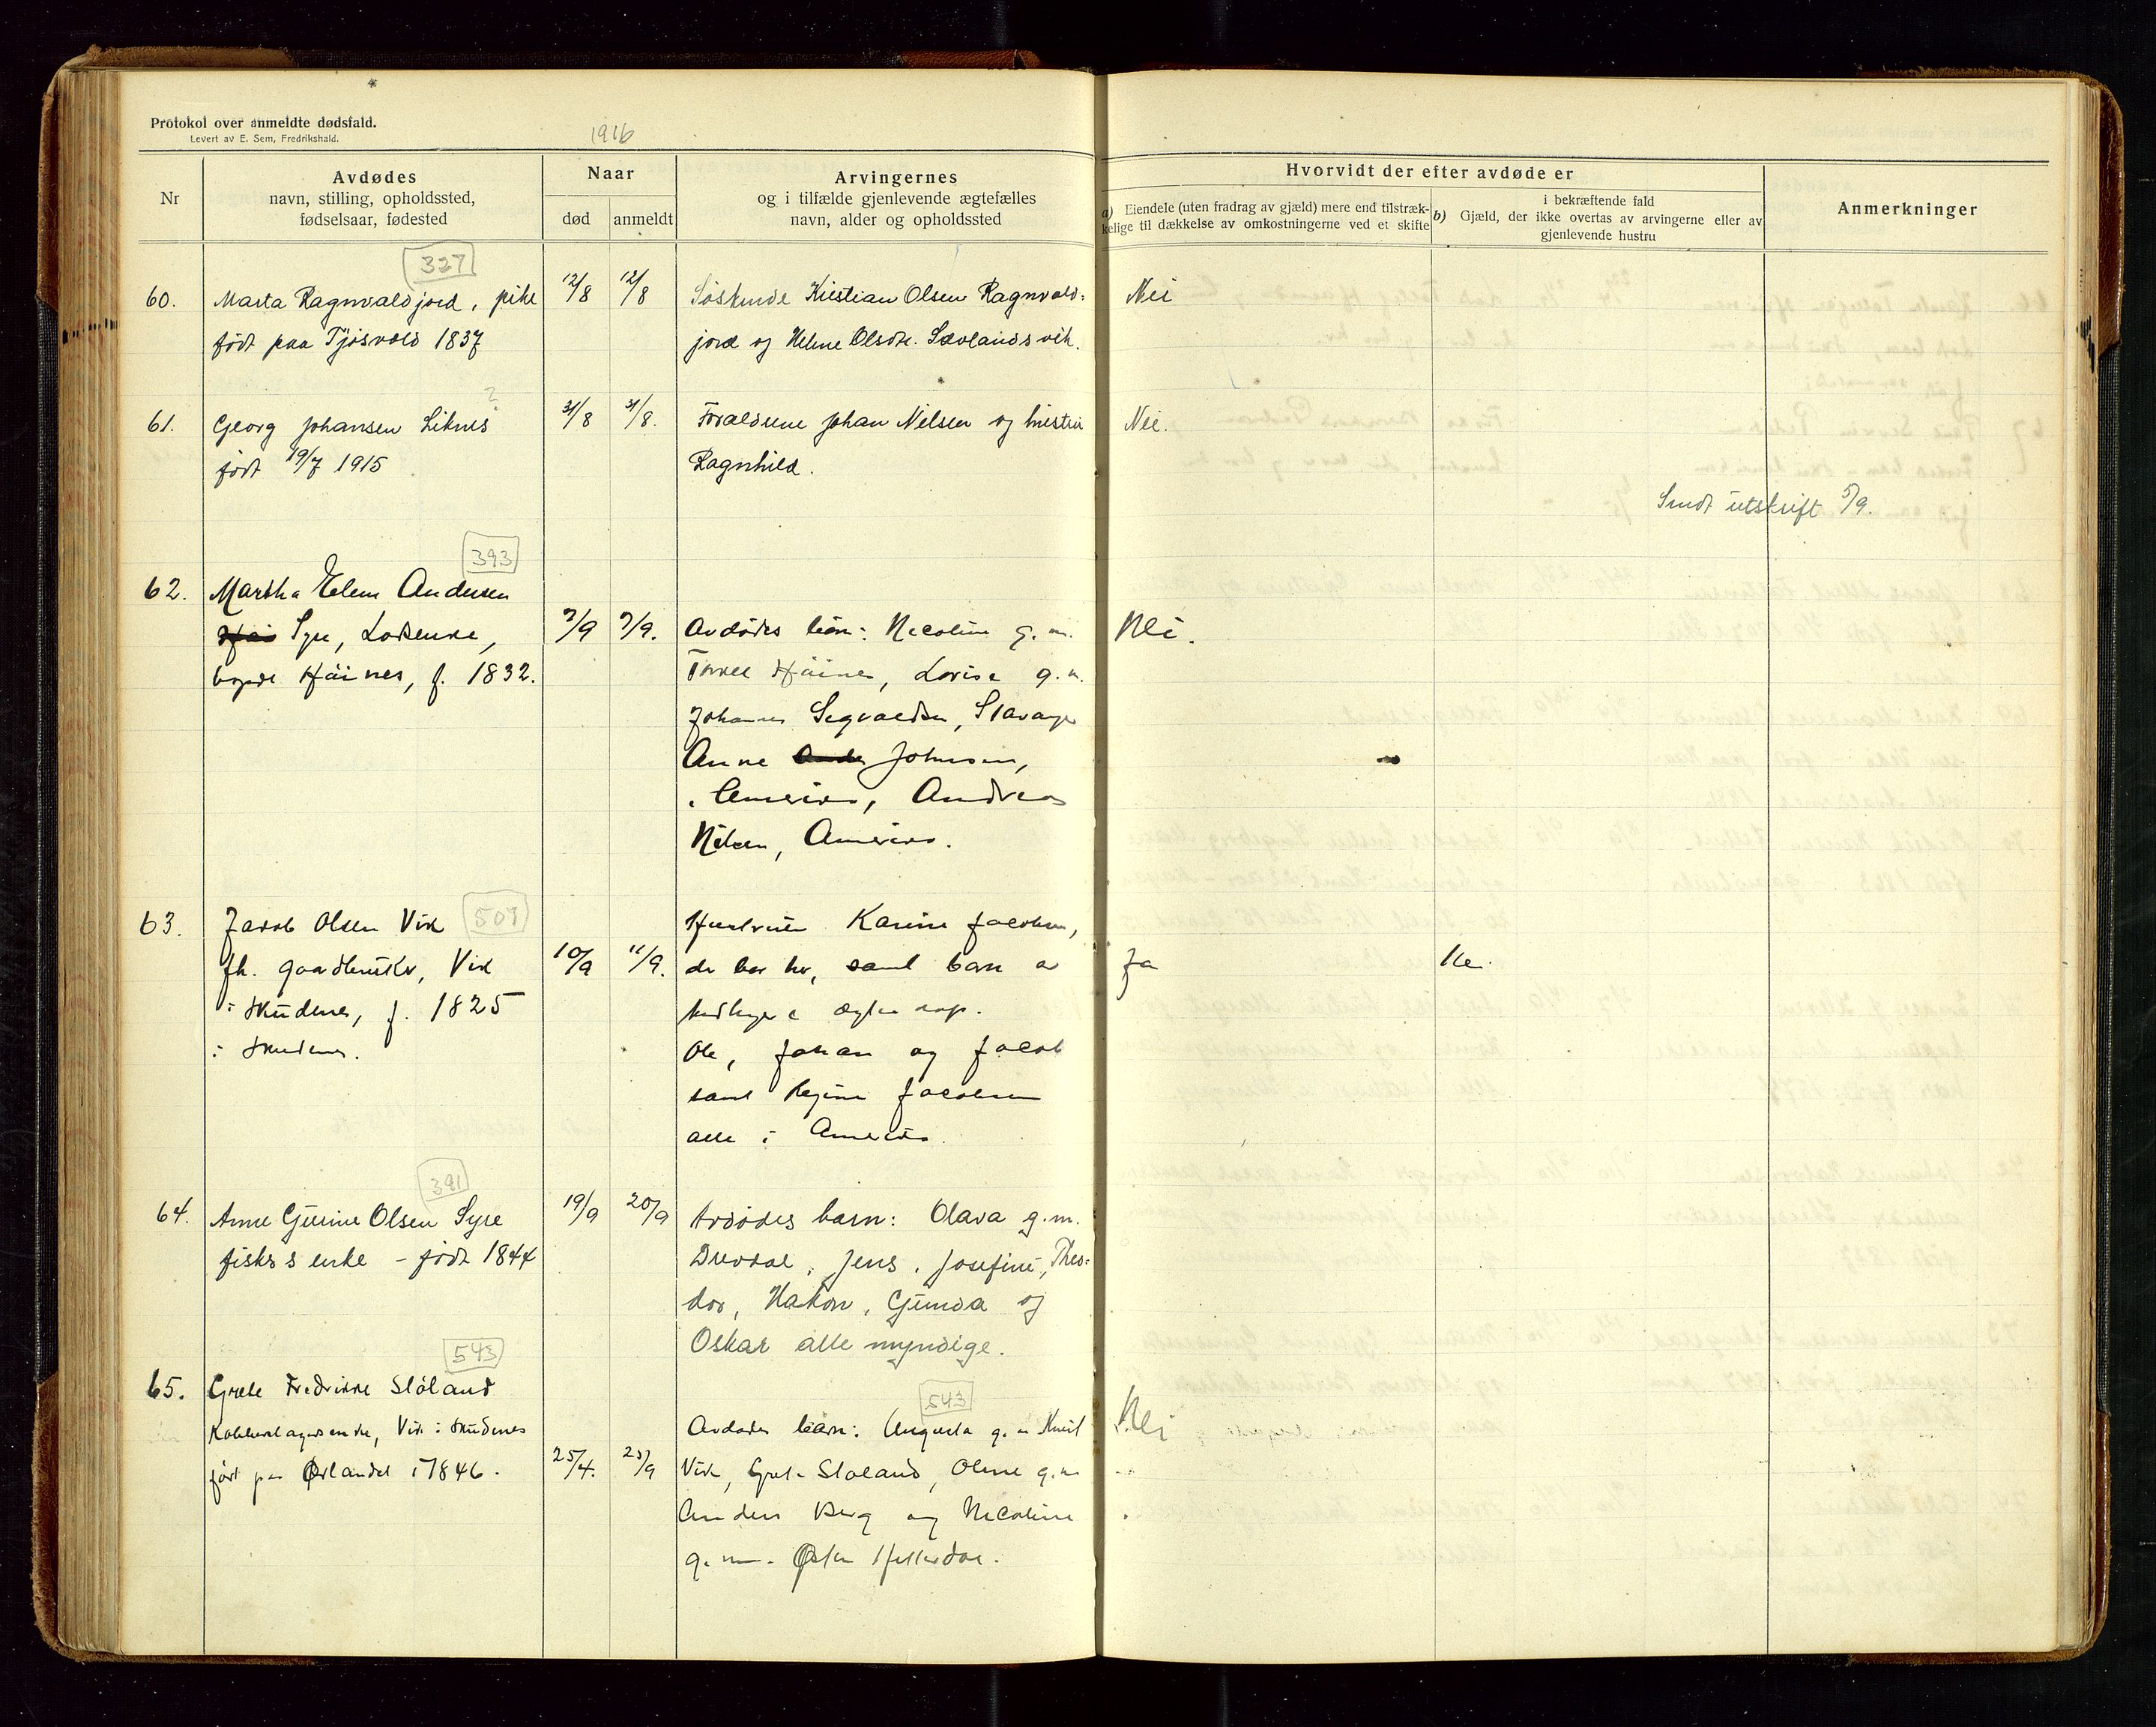 Protokol over anmeldte dødsfald.
Levert av E. Sem, Fredrikshald.
1916
Nr
Avdødes
navn, stilling, opholdssted,
fødselsaar, fødested
Naar
død
anmeldt
Arvingernes
og i tilfælde gjenlevende ægtefælles
navn, alder og opholdssted
Hvorvidt der efter avdøde er
a) Eiendele (uten fradrag av gjæld) mere end tilstræk-
kelige til dækkelse av omkostningerne ved et skifte
i bekræftende fald
b) Gjæld, der ikke overtas av arvingerne eller av
gjenlevende hustru
Anmerkninger
327
60. Marta Ragnvaldjord, pike
født paa Tjøsvold 1837
12/8 12/8
Søskende Kristian Olsen Ragnvald-
jord og Helene Olsdtr. Sævlandsvik.
Nei
61. Georg Johansen Liknes
?
født 19/7 1915
31/8 31/8.
Forældrene Johan Nielsen og hustru
Ragnhild.
Nei.
Sendt utskrift 5/9.
393
62. Martha Elene Andersen
Syre, Losenke,
Høines, f. 1832.
7/9 7/9.
Avdødes børn: Nicoline g. m.
Høines, Lovise g. m.
Johannes Stavanger
Anne Johnsen,
i Amerika, Andreas
Nilsen, Amerika.
Nei.
63. Jacob Olsen Vik
507
fh. gaardbruker, Vik
i Skudenes, f. 1825
i Skudenes.
10/9 11/9.
Karine Jacobsen,
samt barn av
tidligere
Ole, Johan og Jacob
samt Regine Jacobsen
alle i Amerika.
Ja
Nei.
391
64. Anne Gurine Olsen Syre
fiskers enke - født 1844
19/9 20/9
Avdødes barn: Olava g. m.
Jens, Josefine, Theo-
dor, Hakon, Gunda og
Oskar alle myndige.
543
65. Grete Fredrikke Sløland
Vik i Skudenes
født paa Ørlandet i 1846.
25/4. 25/9
543
Avdødes børn: Augusta g. m. Knut
Vik, Grete Sløland, Oline g. m.
Anders Berg og Nicoline
g. m.
Nei